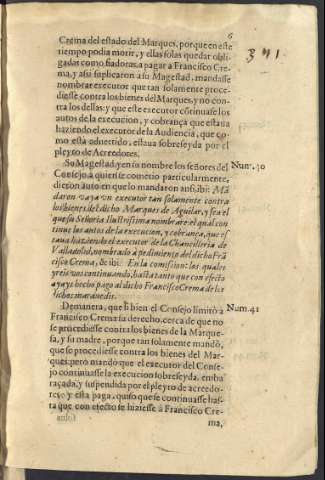 6
341
Crema del estado del Marques, porque en este
tiempo podia morir, y ellas solas quedar obli-
gadas como fiadoras, a pagar a Francisco Cre-
ma, y assi suplicaron a su Magestad, mandasse
nombrar executor que tan solamente proce-
diesse contra los bienes del Marques, y no con-
tra los dellas: y que este executor cõtinuasse los
autos de la execucion, y cobrança que estaua
haziendo el executor de la Audiencia, que co-
mo està aduertido, estaua sobreseyda por el
pleyto de Acreedores.
Su Magestad, y en su nombre los señores del Num. 30
Consejo a quien se cometio particularmente,
dieron auto en que lo mandaron ansi, ibi: Mã
daron vaya vn executor tan solamente contra
los bienes del dicho Marques de Aguilar, y sea el
que su Señoria Ilustrissima nombrare: el qual con
tinue los autos de la execucion, y cobrança, que es
taua haziendo el executor de la Chancilleria de
Valladolid, nombrado a pedimiento del dicho Frã
cisco Crema, & ibi: En la comission: los quales
yreis vos continuando, hasta tanto que con efecto
aya y hecho pago al dicho Francisco Crema de los
dichos marauedis.
Demanera, que si bien el Consejo limitò a Num. 41
Francisco Crema su derecho, cerca de que no
se procediesse contra los bienes de la Marque-
sa, y su madre, porque tan solamente mandò,
que se procediesse contra los bienes del Mar-
ques: pero mandò que el executor del Conse-
jo continuasse la execucion sobreseyda, emba
raçada, y suspendida por el pleyto de acreedo-
res, y esta paga, quiso que se continuasse has-
ta que con efecto se hiziesse a Francisco Cre-
ma,